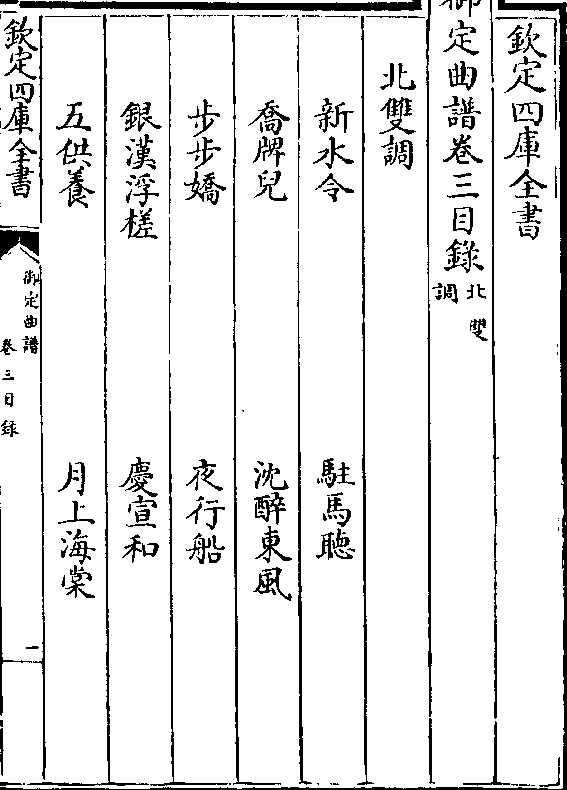 欽定四庫全書
御定曲譜卷三目錄 北雙調
北雙調
新水令 駐馬聽
喬牌兒 沈醉東風
步步嬌 夜行船
銀漢浮槎 慶宣和
五供養 月上海棠
欽定四庫全書 御定曲譜 卷三目錄 一